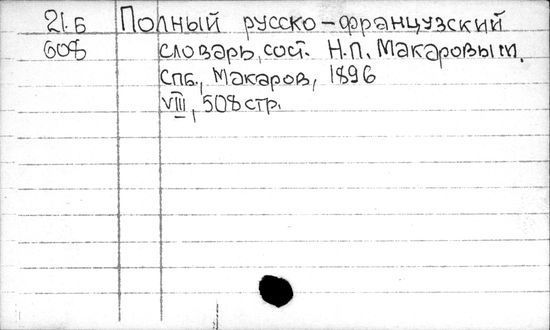 21.Б Полный русско-французский
608 словарь, сост. Н.П. Макаровым.
СПБ., Макаров, 1896
VIII, 508 стр.